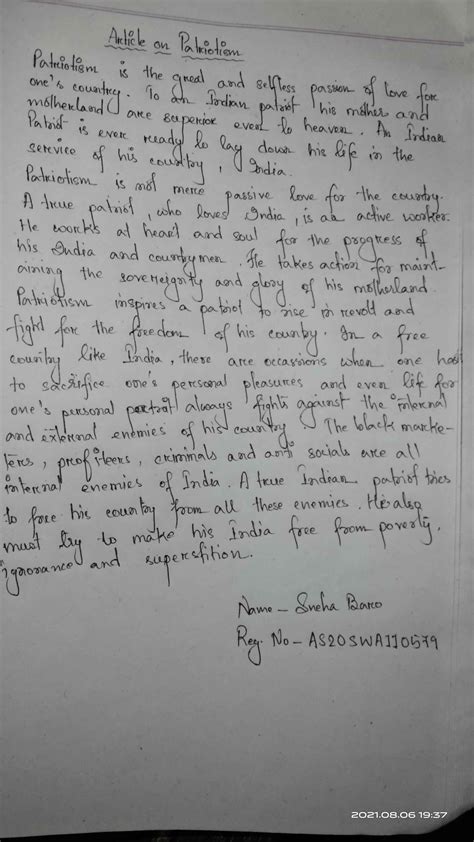 Article on Patriotism
Patriotism is the great and selfless passion of love for
one's country. To an Indian patriot his mother and
motherland are superior even to heaven. An Indian
Patriot is ever ready to lay down his life in the
service of his country, India.
Patriotism is not mere passive love for the country.
A true patriot, who loves India, is an active worker.
He works at heart and soul for the progress of
his India and countrymen. He takes action for maint-
aining the sovereignity and glory of his motherland.
Patriotism inspires a patriot to rise in revolt and
fight for the freedom of his country. In a free
country like India, there are occassions when one has
to sacrifice one's personal pleasures and even life for
one's personal patriot always fights against the internal
and external enemies of his country The black marke-
teers, profiteers, criminals and anti socials are all
internal enemies of India. A true Indian patriot tries
to free his country from all these enemies. He also
must try to make his India free from poverty,
ignorance and superstition.
Name - Sneha Baro
Reg. No - AS20SWA110579
2021.08.06 19:37